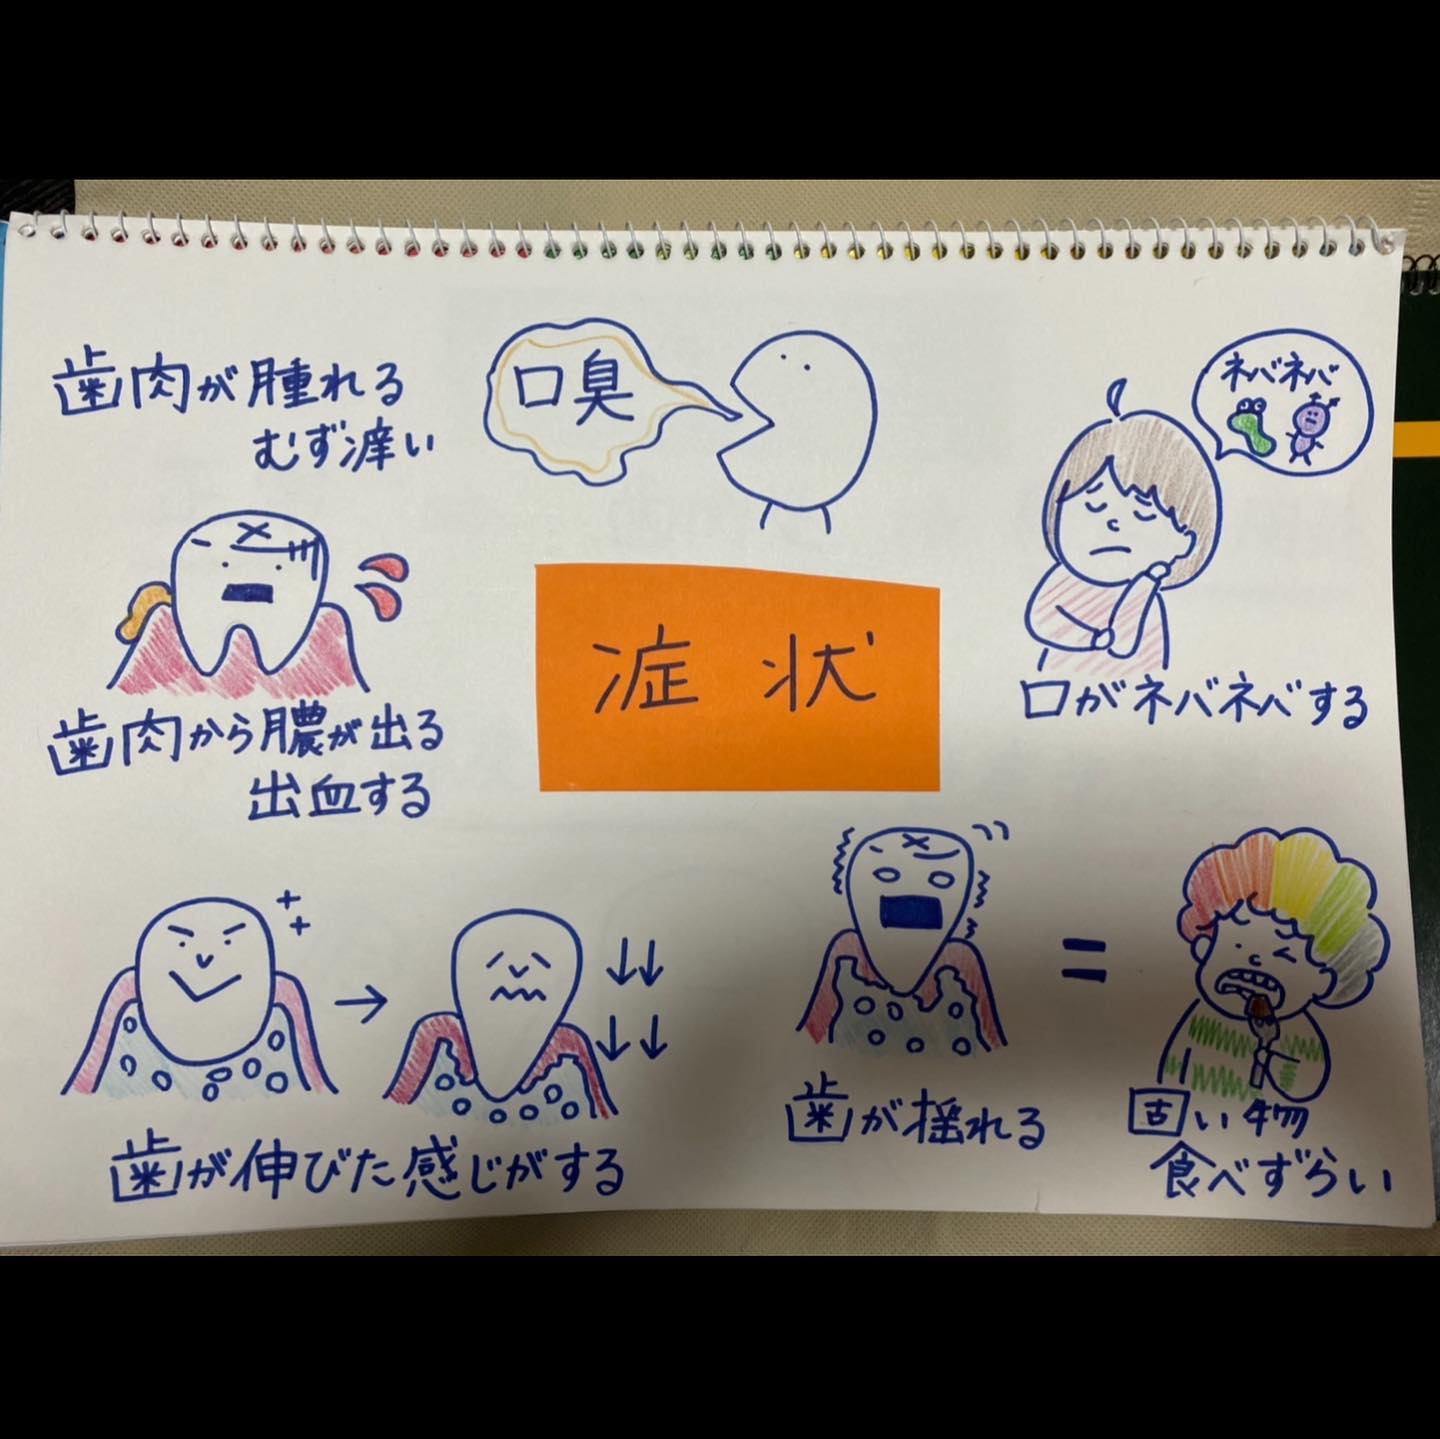 歯肉が腫れる
むず痒い
口臭
ネバネバ
口がネバネバする
症状
歯肉から膿が出る
出血する
歯が伸びた感じがする
歯が揺れる
固い物
食べずらい